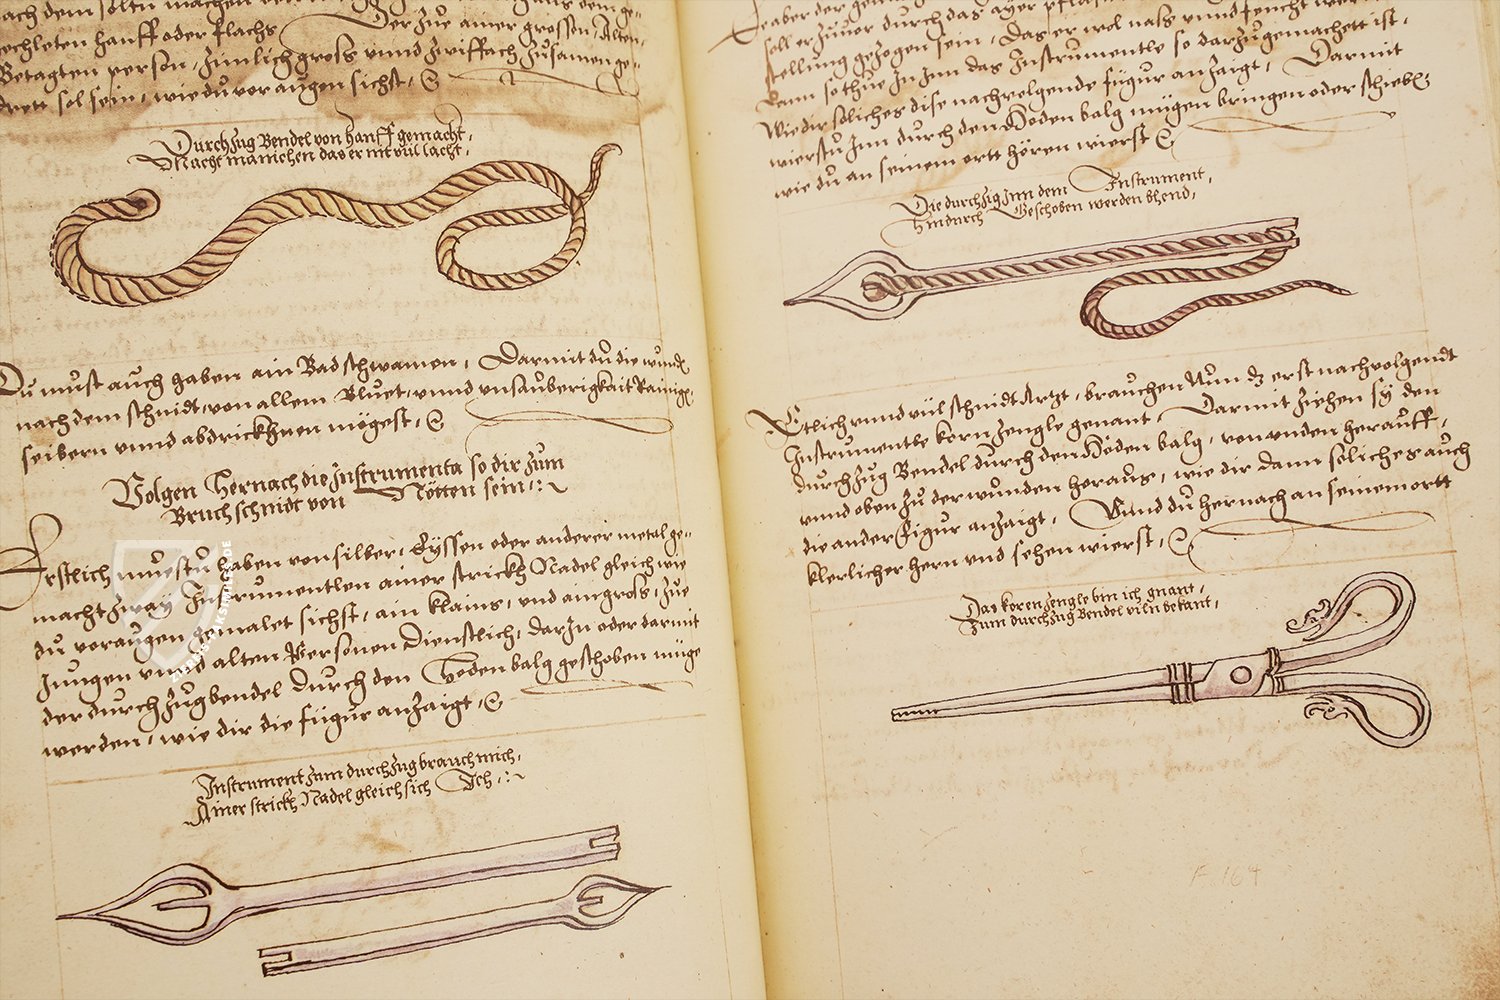 nach dem soltu machen
gechleten hanff oder flachs Der Zue ainer grossen, Alten,
Betagten person, Zimlich gross vnnd Zwiffach Zusamen ge-
drett sol sein, wie du vor augen sichst,
Durchzug Bendel von hanff gemacht,
Macht manichen das er nit vil lacht,
Du must auch haben ain Badschwamen, Darmit du die wund
nach dem schnidt, von allem Bluet, vnnd vnsauberigkait Rainig,
seibern vnnd abdrickhnen mögest,
Volgen Hernach die Instrumenta so dir zum
Bruch schnidt von Nötten sein
Erstlich muestu haben von silber, Eyssen oder anderer metal ge-
macht Zway Instrumentlen ainer strickh Nadel gleich wie
du vor augen gemalet sichst, ain klains, vnd ain gross, Zue
Jungen vnnd alten Personen Dienstlich, darIn oder darmit
der durchZug bendel durch den Hoden balg geschoben müge
werden, wie dir die figur anZaigt,
Instrument zum durchzug brauch mich,
Ainer strickh Nadel gleich sich Ich
soll er Zuuor durch das ayer
stellung gezogen sein, Das er wol nass vnnd feucht
dann so thue In Inn das Instrumentle so darZu gemachett ist,
Wie dir soliches dise nachvolgende figur anZaigt, Darmit
wierstu Inn durch den Hoden balg mügen bringen oder schieben
wie du an seinem ortt hören wierst
Die durchzig Inn dem Instrument,
Hindurch Geschoben werden bhend,
Etlich vnnd vil schnidt Artzt, brauchen Nun dz erst nachvolgendt
Instrumentle korn Zengle genant, Darmit Ziehen sy den
durchZug Bendel durch den Hoden balg, von vnden herauff,
vnnd oben Zu der wunden heraus, wie dir dann soliches auch
die ander figur anZaigt, Vnnd du hernach an seinem ortt
klerlicher hern vnd sehen wierst,
Das koren Zengle bin ich gnant,
Zum durchzug Bendel viln bekant,
F. 164